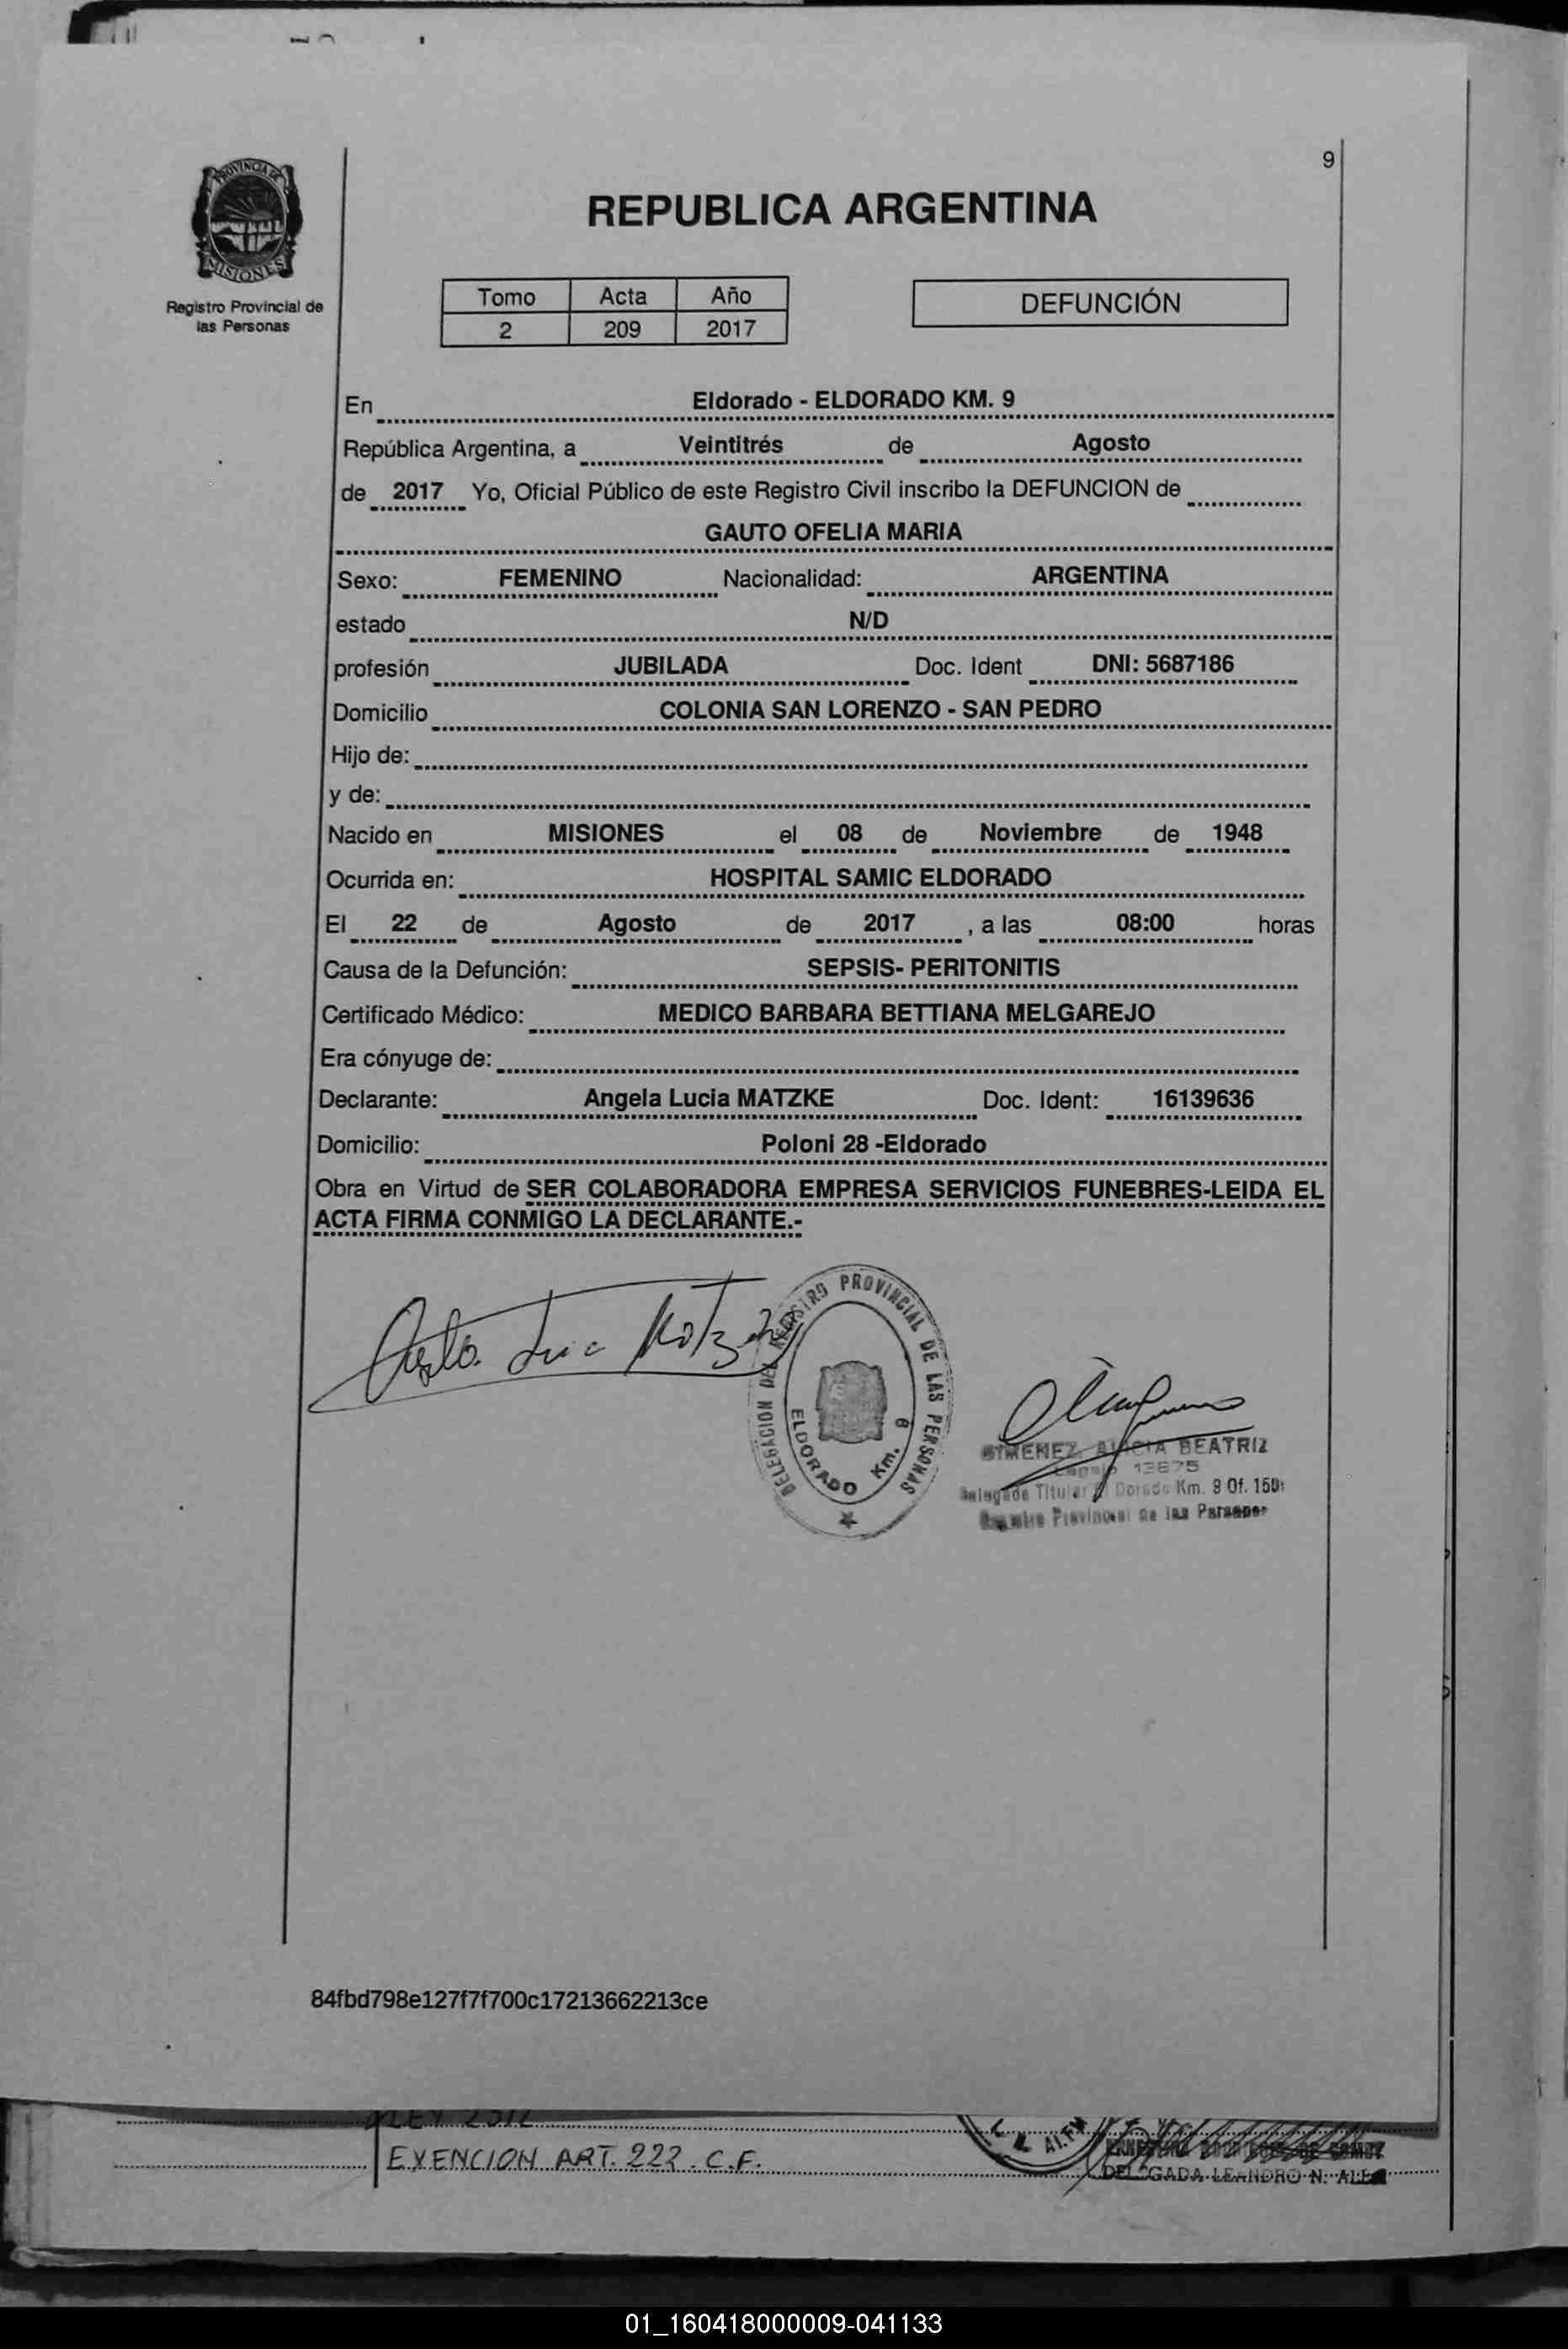 9
PROVINCIA DE
MISIONES
Registro Provincial de
las Personas
REPUBLICA ARGENTINA
Tomo Acta Año
2 209 2017
DEFUNCIÓN
En Eldorado - ELDORADO KM. 9
República Argentina, a Veintitrés de Agosto
de 2017 Yo, Oficial Público de este Registro Civil inscribo la DEFUNCION de
GAUTO OFELIA MARIA
Sexo: FEMENINO Nacionalidad: ARGENTINA
estado N/D
profesión JUBILADA Doc. Ident DNI: 5687186
Domicilio COLONIA SAN LORENZO - SAN PEDRO
Hijo de:
y de:
Nacido en MISIONES el 08 de Noviembre de 1948
Ocurrida en: HOSPITAL SAMIC ELDORADO
El 22 de Agosto de 2017 , a las 08:00 horas
Causa de la Defunción: SEPSIS- PERITONITIS
Certificado Médico: MEDICO BARBARA BETTIANA MELGAREJO
Era cónyuge de:
Declarante: Angela Lucia MATZKE Doc. Ident: 16139636
Domicilio: Poloni 28 -Eldorado
Obra en Virtud de SER COLABORADORA EMPRESA SERVICIOS FUNEBRES-LEIDA EL
ACTA FIRMA CONMIGO LA DECLARANTE.-
DELEGACION DEL REGISTRO PROVINCIAL DE LAS PERSONAS
ELDORADO Km. 9
GIMENEZ, ALICIA BEATRIZ
Titular Km. 9 Of. 150
Provincial de las Personas
84fbd798e127f7f700c17213662213ce
EXENCION ART. 222. C.F.
DELEGADA LEANDRO N. ALEM
01_160418000009-041133